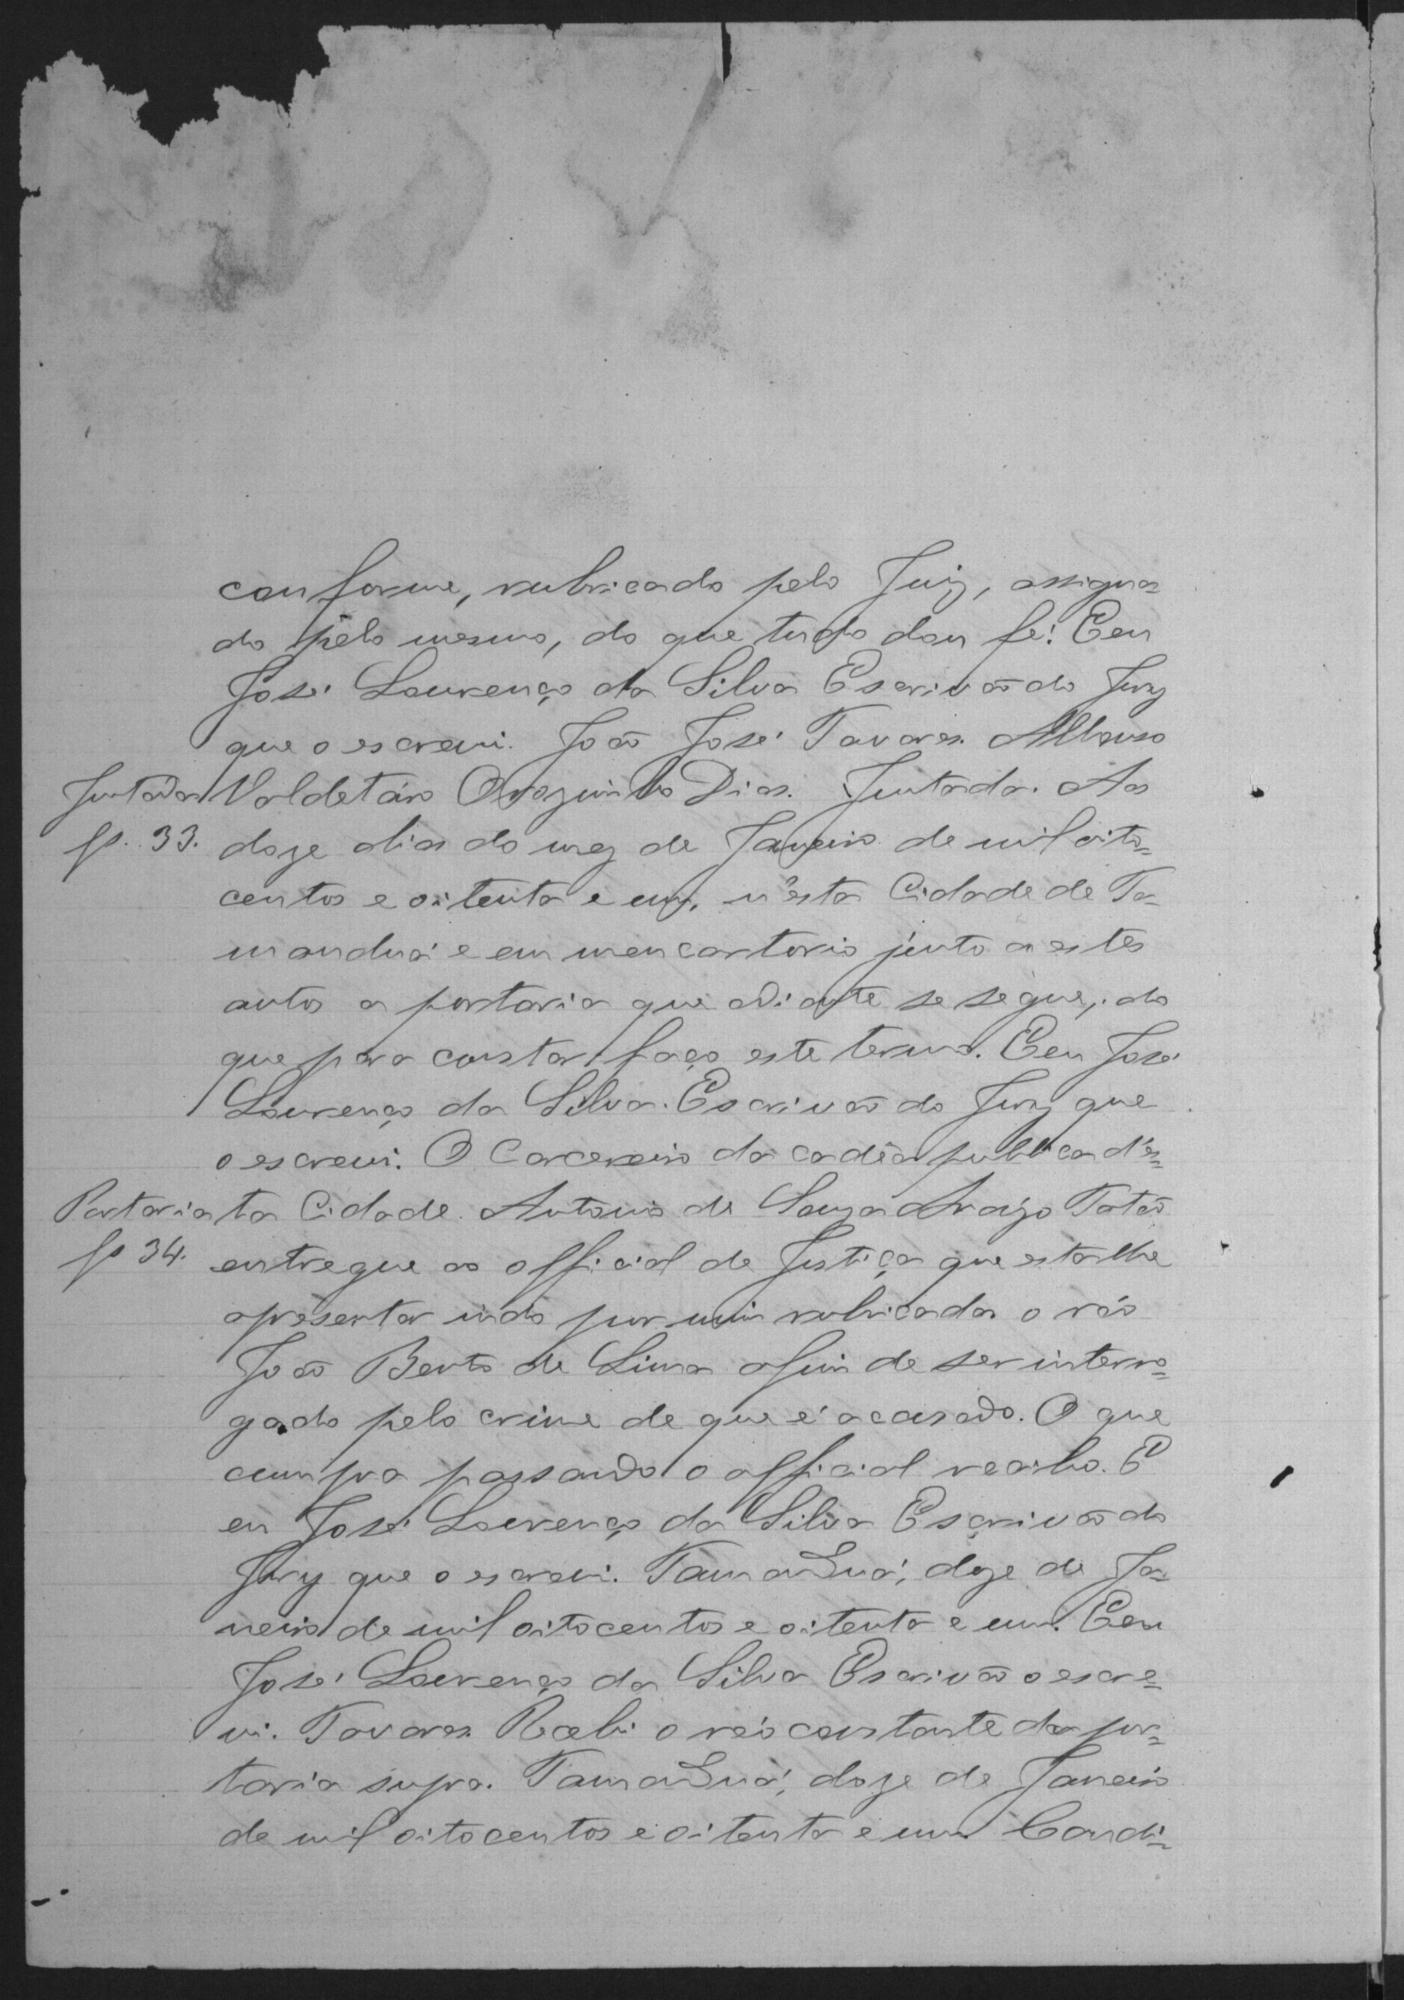 conforme, rubricado pelo Juiz, assigna-
do pelo mesmo, do que tudo dou fé. Eeu
José Lourenço da Silva Escrivão do Jury
que o escrevi. João José Tavares. Affonso
Juntada Valdetáro Orozimbo Dias. Juntada. Aos
fl. 33. doze dias do mez de Janeiro de mil oito=
centos e oitenta e um, n'esta Cidade de Ta-
manduá e em meu cartorio junto a estes
autos a portaria que adiante se segue, do
que para constar faço este termo. Eeu José
Lourenço da Silva. Escrivão do Jury que
o escrevi. O Carcereiro da cadêa publica d'es=
Portaria ta Cidade Antonio de Souza Araújo Tatão
fl 34. entregue ao official de Justiça que esta lhe
apresentar indo por mim rubricada o réo
João Bento de Lima afim de ser interro=
gado pelo crime de que é acusado. O que
cumpra passando o official recibo. E
eu José Lourenço da Silva Escrivão do
Jury que o escrevi. Tamanduá, doze de Ja-
neiro de mil oitocentos e oitenta e um. Eeu
José Lourenço da Silva Escrivão o escre=
vi. Tavares. Recebi o réo constante da por=
taria supra. Tamanduá, doze de Janeiro
de mil oitocentos e oitenta e um Candi=